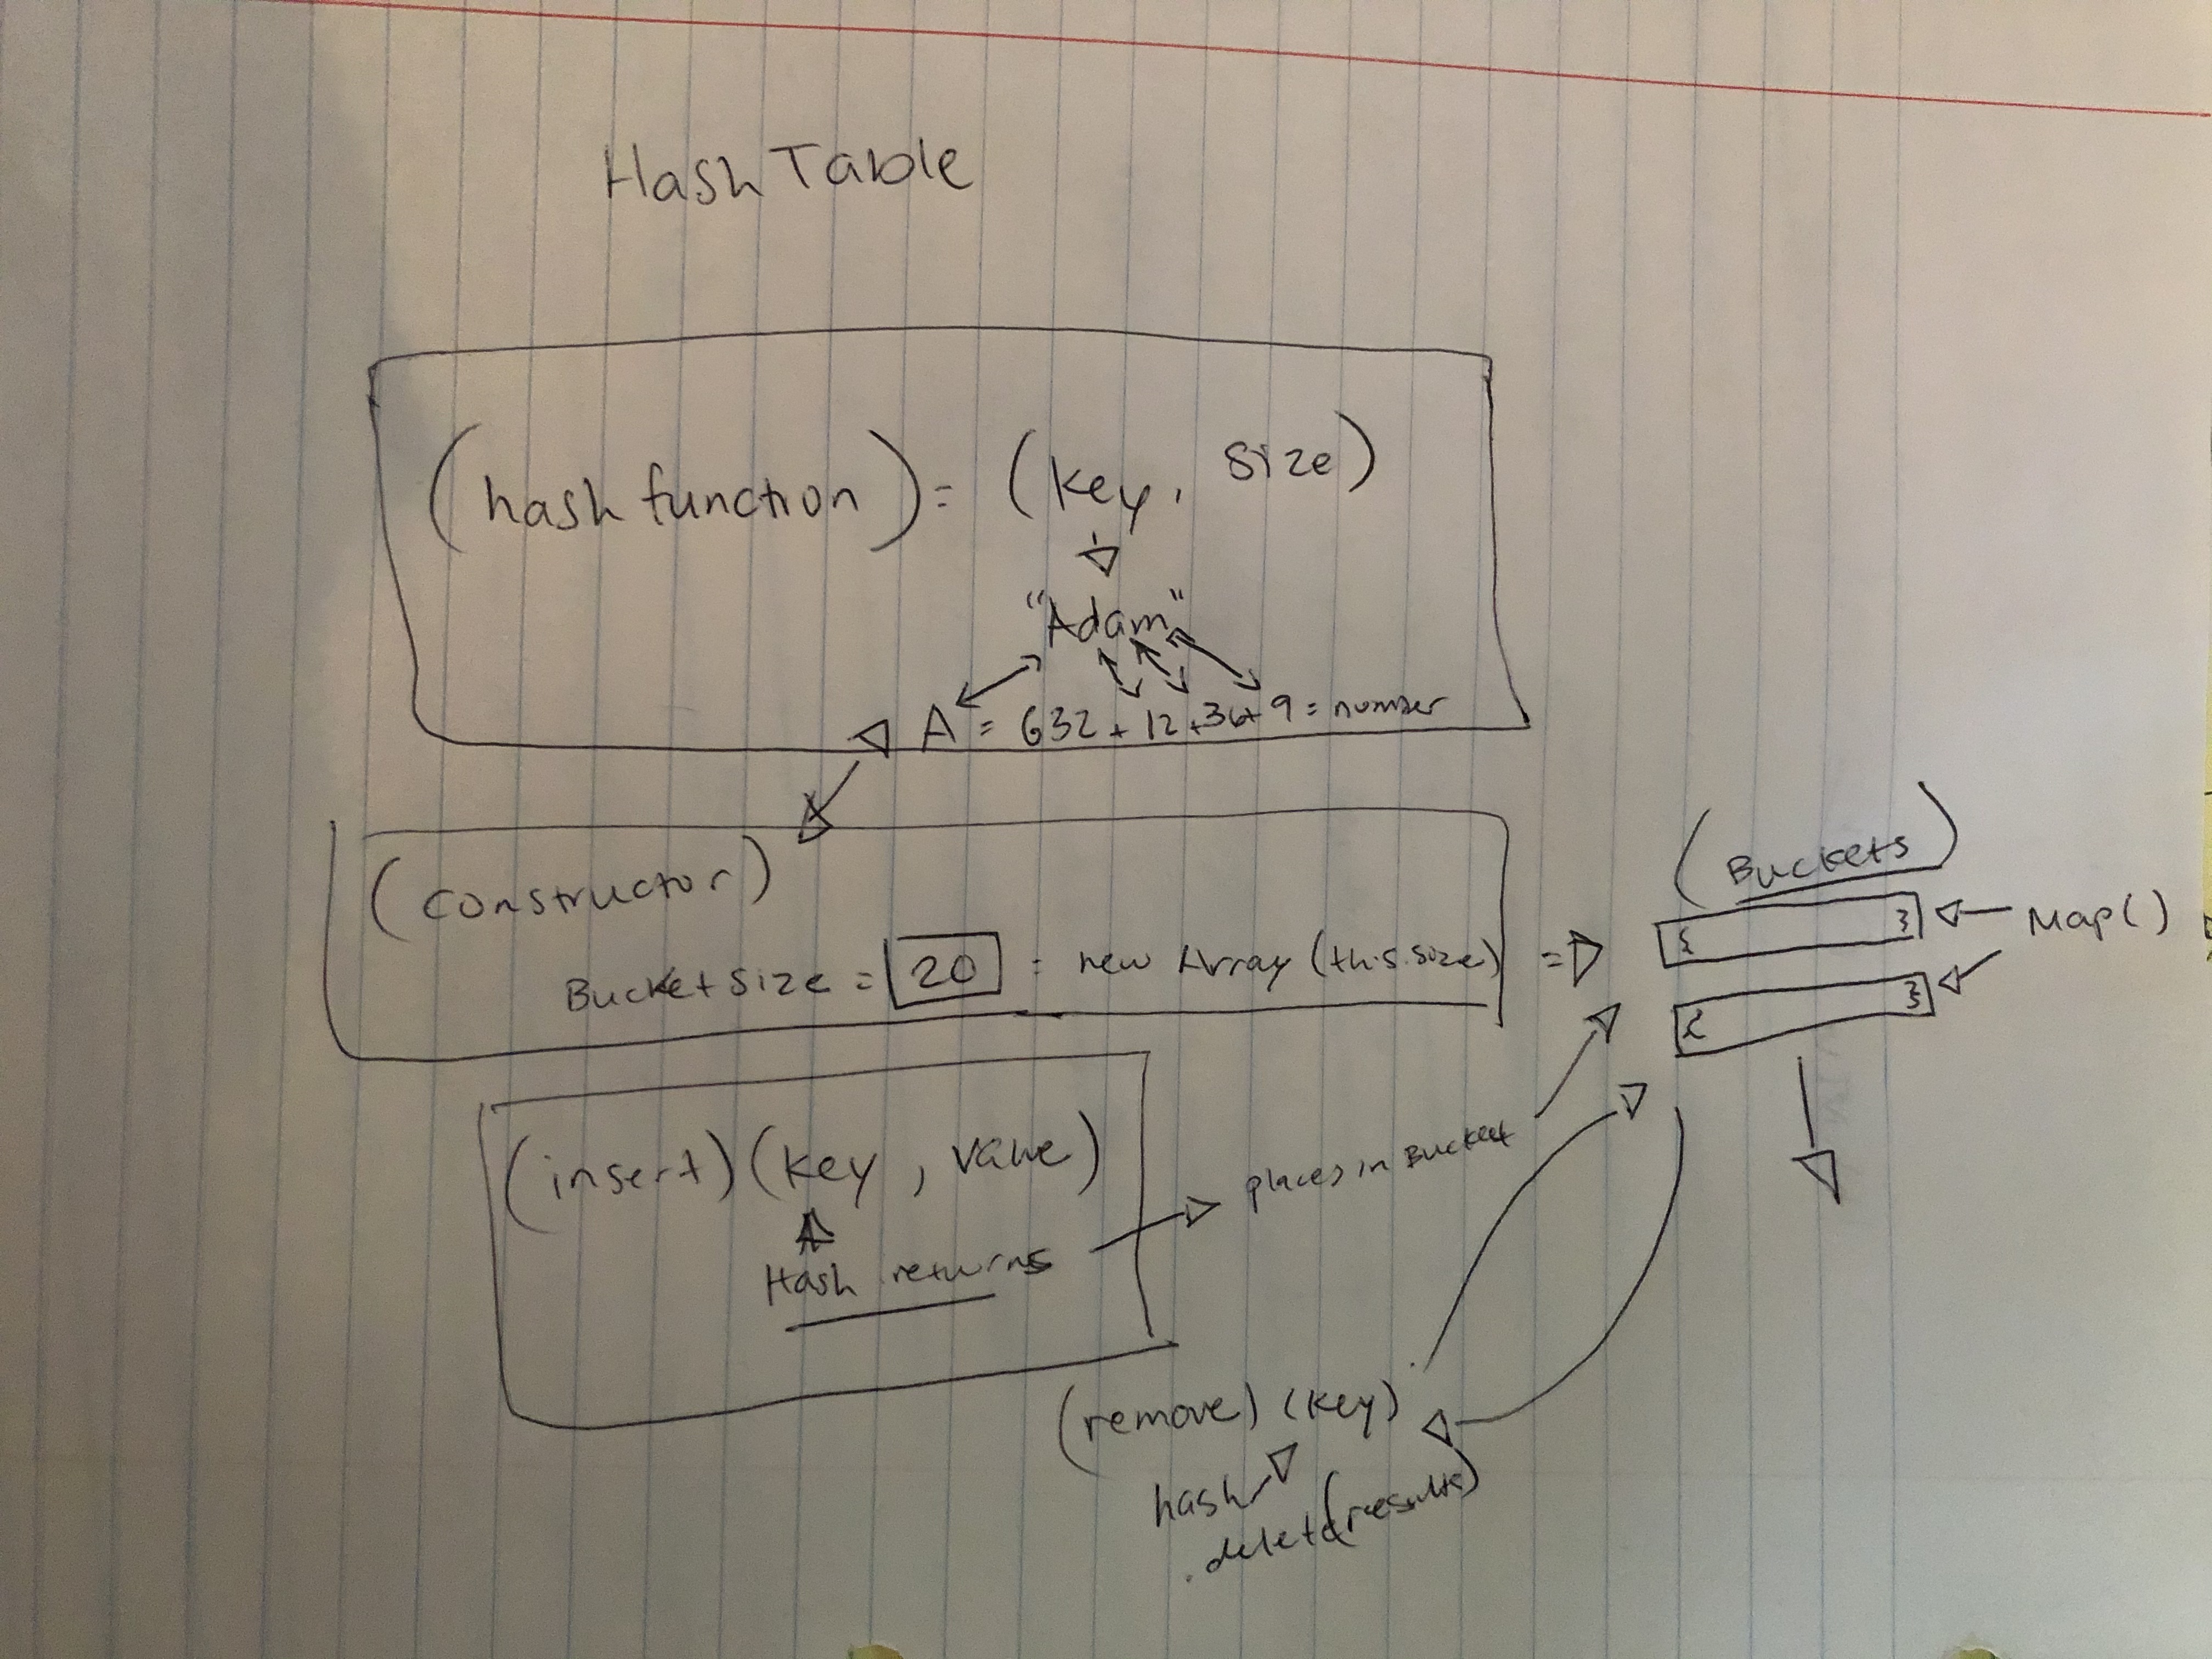 Hash Table
(hash function) = (key, size)
"Adam"
A = 632 + 12 + 36 + 9 = number
(constructor)
Bucket size = 20 = new Array (this.size) =
(Buckets)
{ }
Map()
{ }
(insert) (key, value)
Hash returns
places in Bucket
(remove) (key)
hash
.delete(results)